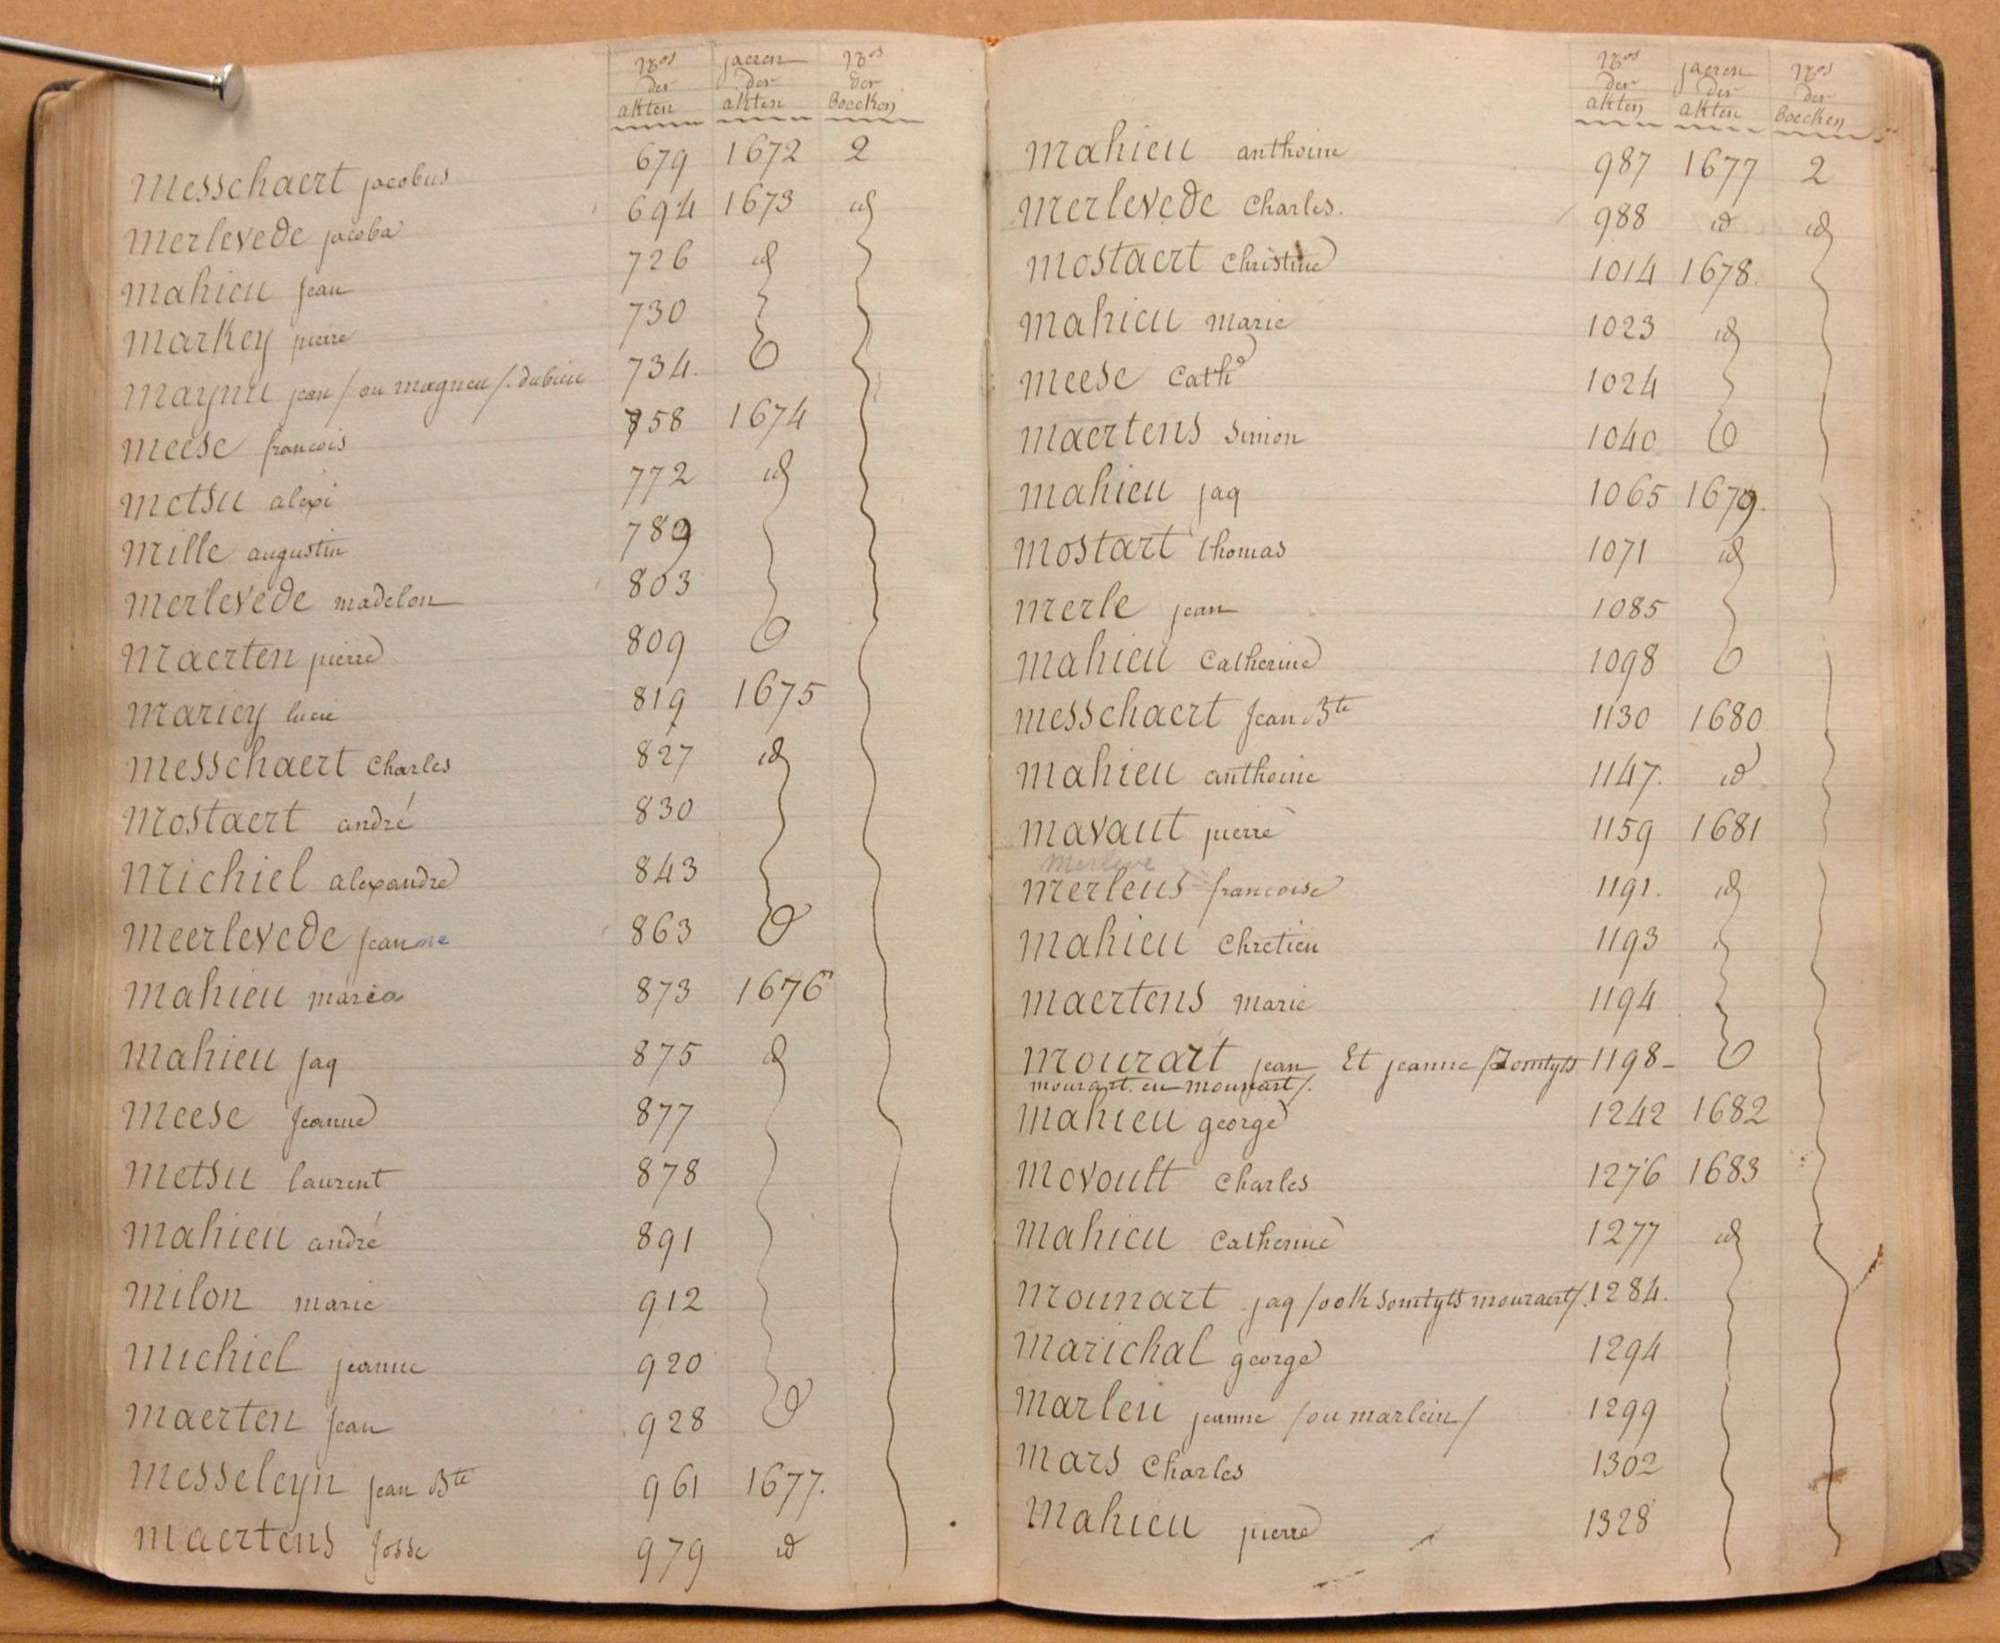 Nos jaeren Nos
der der der
akten akten Boecken
messchaert jacobus 679 1672 2
merlevede jacoba 694 1673 id
mahieu jean 726 id
markey pierre 730
maynu jean / ou magneu / . dubieu 734.
meese francois 758 1674
metsu alexi 772 id
mille augustin 789
merlevede madelon 803
maerten pierre 809
maricy lucie 819 1675
messchaert Charles 827 id
mostaert andré 830
michiel alexandre 843
meerlevede jeanne 863
mahieu maria 873 1676
mahieu jaq 875 id
meese jeanne 877
metsu laurent 878
mahieu andré 891
milon marie 912
michiel jeanne 920
maerten jean 928
messeleyn jean Bte 961 1677.
maertens josse 979 id
Nos jaeren Nos
der der der
akten akten Boecken
mahieu anthoine 987 1677 2
merlevede Charles. 988 id id
mostaert Christine 1014 1678.
mahieu marie 1023 id
meese Cathe 1024
maertens Simon 1040
mahieu jaq 1065 1679.
mostart thomas 1071 id
merle jean 1085
mahieu Catherine 1098
messchaert jean Bte 1130 1680
mahieu anthoine 1147. id
mavaut pierre 1159 1681
merleve
merleus francoise 1191. id
mahieu Chretien 1193
maertens marie 1194
mourart jean Et jeanne / Somtyts 1198-
mourart. en mounart /.
mahieu george 1242 1682
movoult Charles 1276 1683
mahieu Catherine 1277 id
mounart jaq / ook somtyts mouraert / . 1284.
marichal george 1294
marleu jeanne / ou marlein / 1299
mars Charles 1302
mahieu pierre 1328